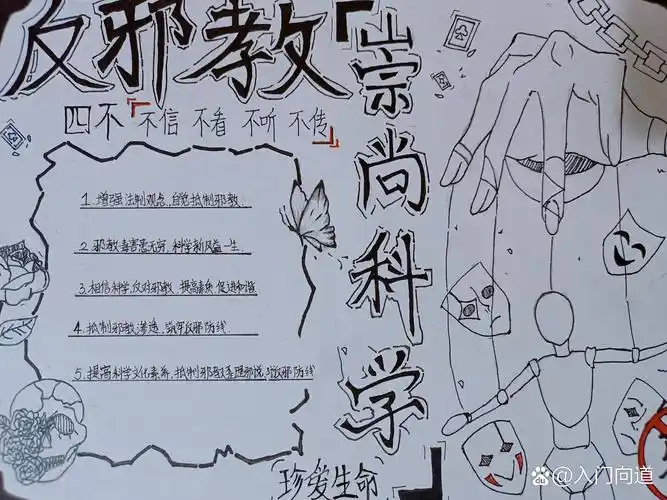 反邪教
崇尚科学
四不「不信 不看 不听 不传」
1. 增强法制观念，自觉抵制邪教.
2. 邪教毒害患无穷，科学新风益一生.
3. 相信科学，反对邪教，提高素质，促进和谐
4. 抵制邪教渗透，筑牢反邪防线.
5. 提高科学文化素养，抵制邪教歪理邪说，反邪防线
珍爱生命
@入门向道